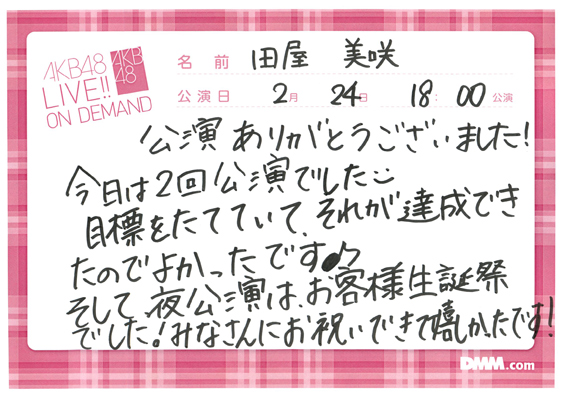 AKB48
LIVE!!
ON DEMAND
AKB
48
名前 田屋 美咲
公演日 2月 24日 18:00公演
公演ありがとうございました!
今日は2回公演でした
目標をたてていて、それが達成でき
たのでよかったです♪
そして、夜公演は、お客様生誕祭
でした!みなさんにお祝いできて嬉しかったです!
DMM.com